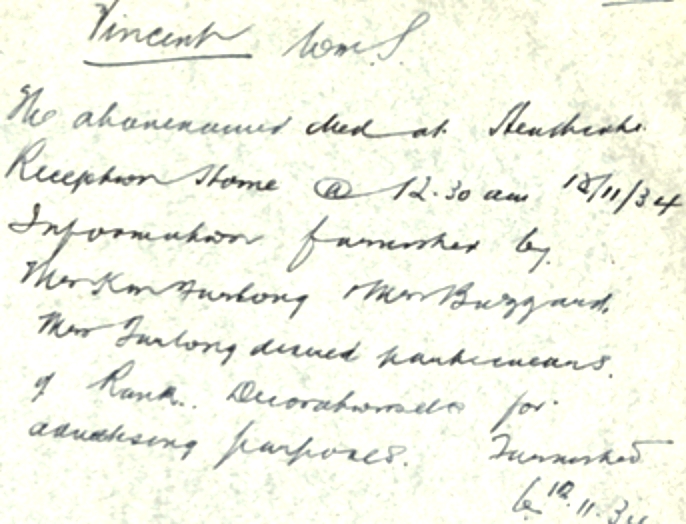 Vincent Wm S.
The abovenamed died at Heathcote
Reception Home @ 12.30 am 18/11/34
Information furnished by
Mrs Furlong Mrs Buzzard.
Mrs Furlong desired particulars
of Rank. Decorations etc for
advertising purposes. Furnished
11.34